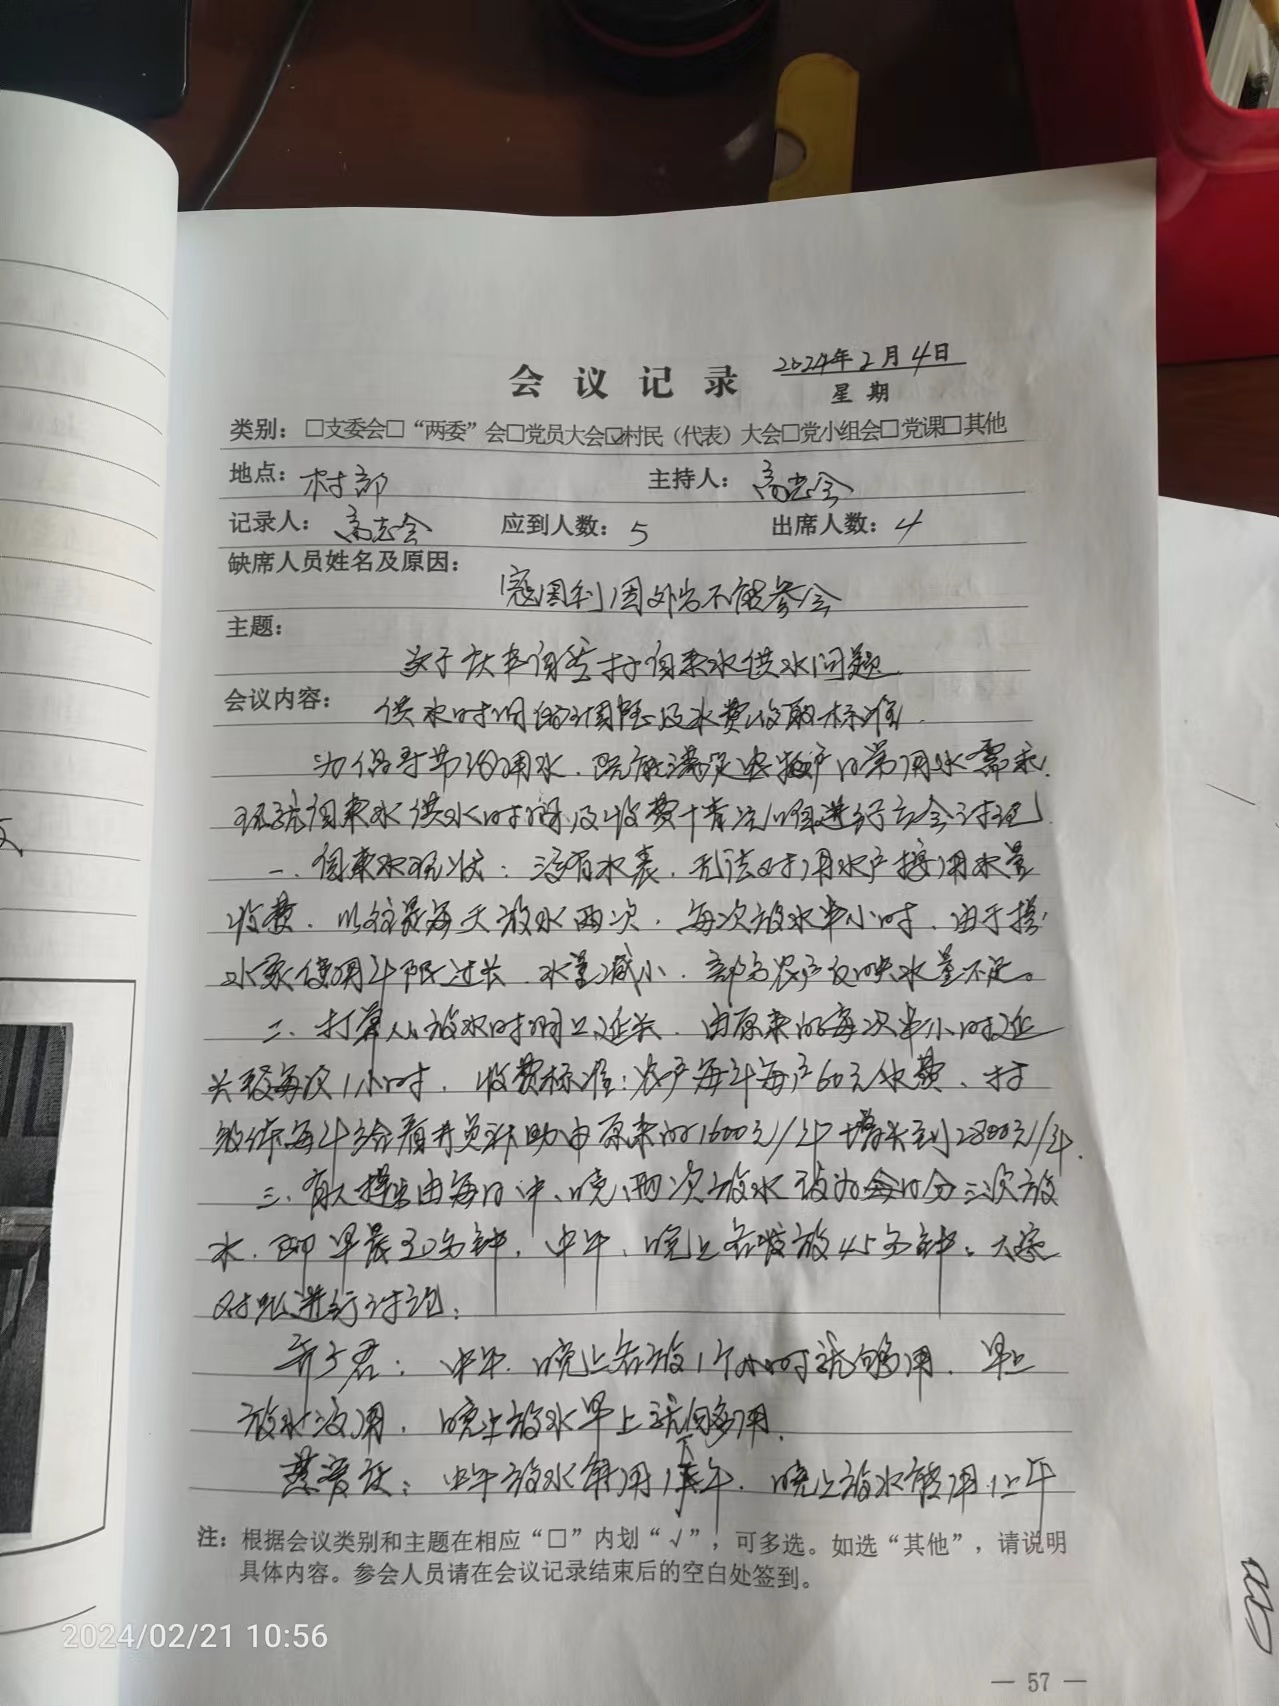 会议记录
2024年2月4日
星期
类别：□支委会□“两委”会□党员大会☑村民（代表）大会□党小组会□党课□其他
地点：村部 主持人：高志会
记录人：高志会 应到人数：5 出席人数：4
缺席人员姓名及原因：
寇国利因外出不能参会
主题：
关于 自来水供水问题
会议内容：供水时间的调整及水费收取标准.
为倡导节约用水，既能满足农牧户日常用水需求.
现就自来水供水时间及收费情况 进行 会讨论
一、自来水现状：没有水表，无法对用水户按用水量
收费，以往是每天放水两次，每次放水半小时，由于
水泵使用年限过长，水量减小，部分农户反映水量不足。
二、打算从放水时间上延长，由原来的每次半小时延
长至每次1小时，收费标准：农户每年每户60元水费、村
每年给看井员补助由原来的1600元/年增长到2800元/年.
三、有人提出由每日中、晚两次放水改为每日分三次放
水，即早晨30分钟，中午、晚上各放45分钟。大家
对此进行讨论：
：中午、晚上各放1个小时就够用，早上
放水没用，晚上放水早上就够用.
：中午放水能用1下午，晚上放水能用1上午
注：根据会议类别和主题在相应“□”内划“√”，可多选。如选“其他”，请说明
具体内容。参会人员请在会议记录结束后的空白处签到。
2024/02/21 10:56
— 57 —